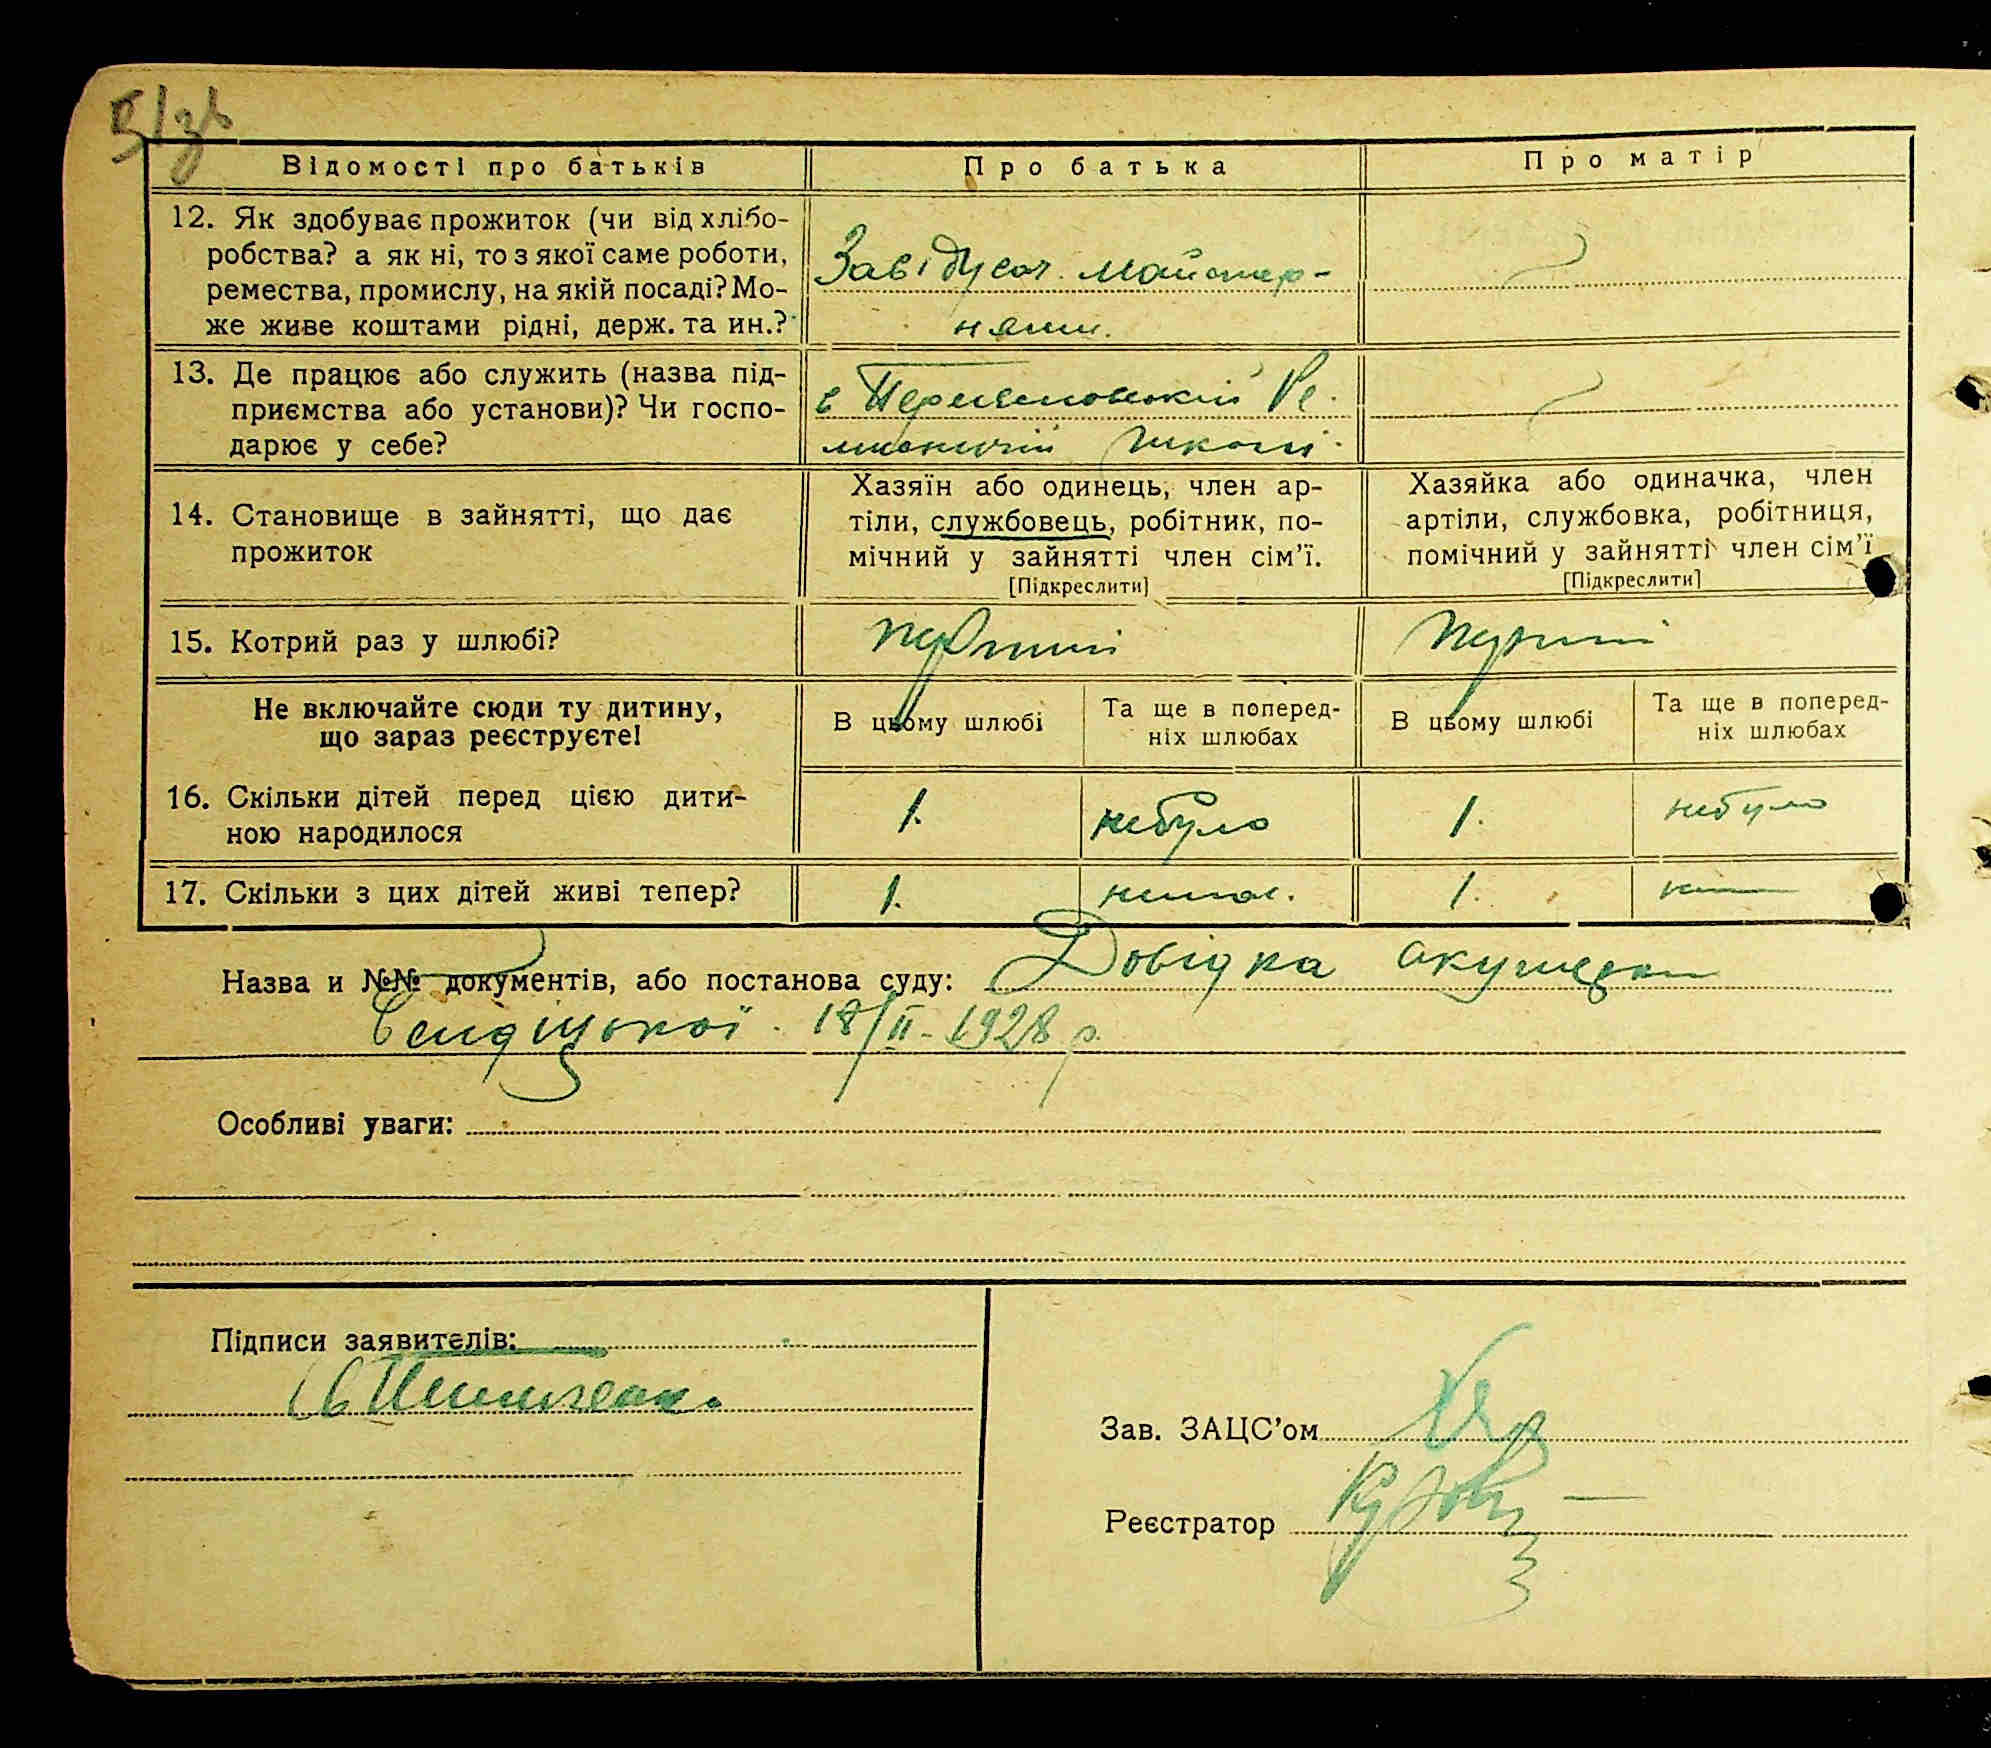 Відомості про батьків
Про батька
Про матір
12. Як здобуває прожиток (чи від хлібо-
робства? а як ні, то з якої саме роботи,
ремества, промислу, на якій посаді? Мо-
же живе коштами рідні, держ. та ин.?
Завідуюч. майстер-
нями.
13. Де працює або служить (назва під-
приємства або установи)? Чи госпо-
дарює у себе?
в
школі.
14. Становище в зайнятті, що дає
прожиток
Хазяїн або одинець, член ар-
тіли, службовець, робітник, по-
мічний у зайнятті член сім’ї.
[Підкреслити]
Хазяйка або одиначка, член
артіли, службовка, робітниця,
помічний у зайнятті член сім’ї
[Підкреслити]
15. Котрий раз у шлюбі?
перший
перший
Не включайте сюди ту дитину,
що зараз реєструєте!
В цьому шлюбі
Та ще в поперед-
ніх шлюбах
В цьому шлюбі
Та ще в поперед-
ніх шлюбах
16. Скільки дітей перед цією дити-
ною народилося
1.
небуло
1.
небуло
17. Скільки з цих дітей живі тепер?
1.
немає.
1.
Назва и №№ документів, або постанова суду: Довідка акушерки
18/II-1928 р.
Особливі уваги:
Підписи заявителів:
Зав. ЗАЦС’ом
Реєстратор